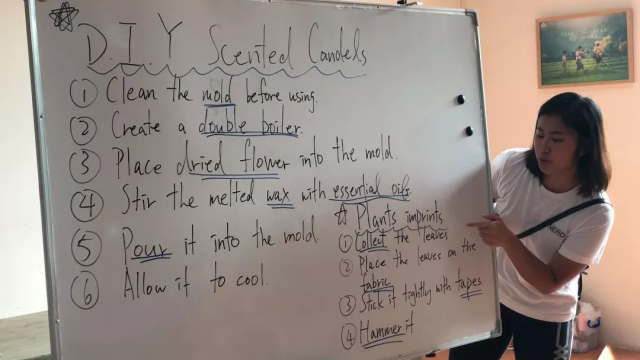 D.I.Y Scented Candels
① Clean the mold before using.
② Create a double boiler.
③ Place dried flower into the mold.
④ Stir the melted wax with essential oils.
⑤ Pour it into the mold
⑥ Allow it to cool.
☆ Plants imprints
① Collect the leaves
② Place the leaves on the
fabric
③ Stick it tightly with tapes
④ Hammer it.